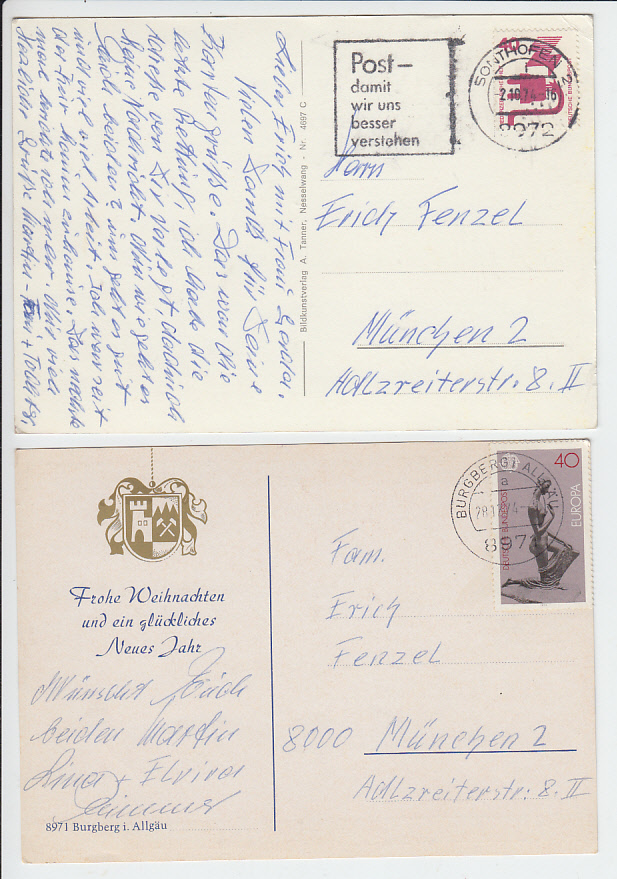 Lieber Erich mit Frau Gerda.
Vielen Dank für Deine
Karten grüße. Das war die
letzte Rettung, ich habe die
Adresse von Dir verlegt, dadurch
keine
Euch beiden? uns geht es gut
und viel Arbeit. Ich war seit
der Kur
mehr. Nun viele
herzliche Grüße Martin
Bildkunstverlag A. Tanner, Nesselwang - Nr. 4697 C
Post –
damit
wir uns
besser
verstehen
SONTHOFEN 2
-2.10.74-16
8972
DEUTSCHE BUNDESPOST
Herrn
Erich Fenzel
München 2
Adlzreiterstr. 8. II
Frohe Weihnachten
und ein glückliches
Neues Jahr
Wünscht Euch
beiden Martin
Lina + Elvira
8971 Burgberg i. Allgäu
BURGBERG I ALLGÄU
a
897
40
EUROPA
DEUTSCHE BUNDESPOST
Fam.
Erich
Fenzel
8000 München 2
Adlzreiterstr. 8. II